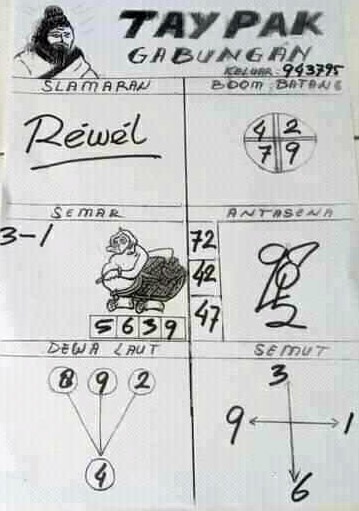 TAYPAK
GABUNGAN
KELUAR: 943795
SLAMARAN
BOOM: BATANG
Réwél
4 2
7 9
SEMAR
ANTASENA
3-1
72
42
47
5 6 3 9
DEWA LAUT
SEMUT
8 9 2
4
3
9 1
6